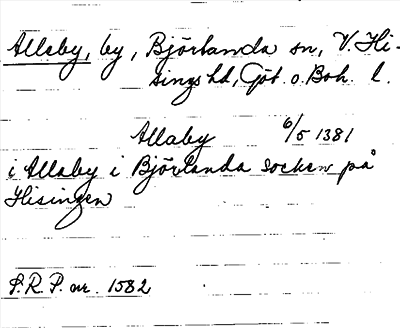 Allaby, by, Björlanda sn, V. Hi-
sings hd, Göt. o. Boh. l.
Allaby 6/5 1381
i Allaby i Björlanda socken på
Hisingen
S.R.P. nr. 1582